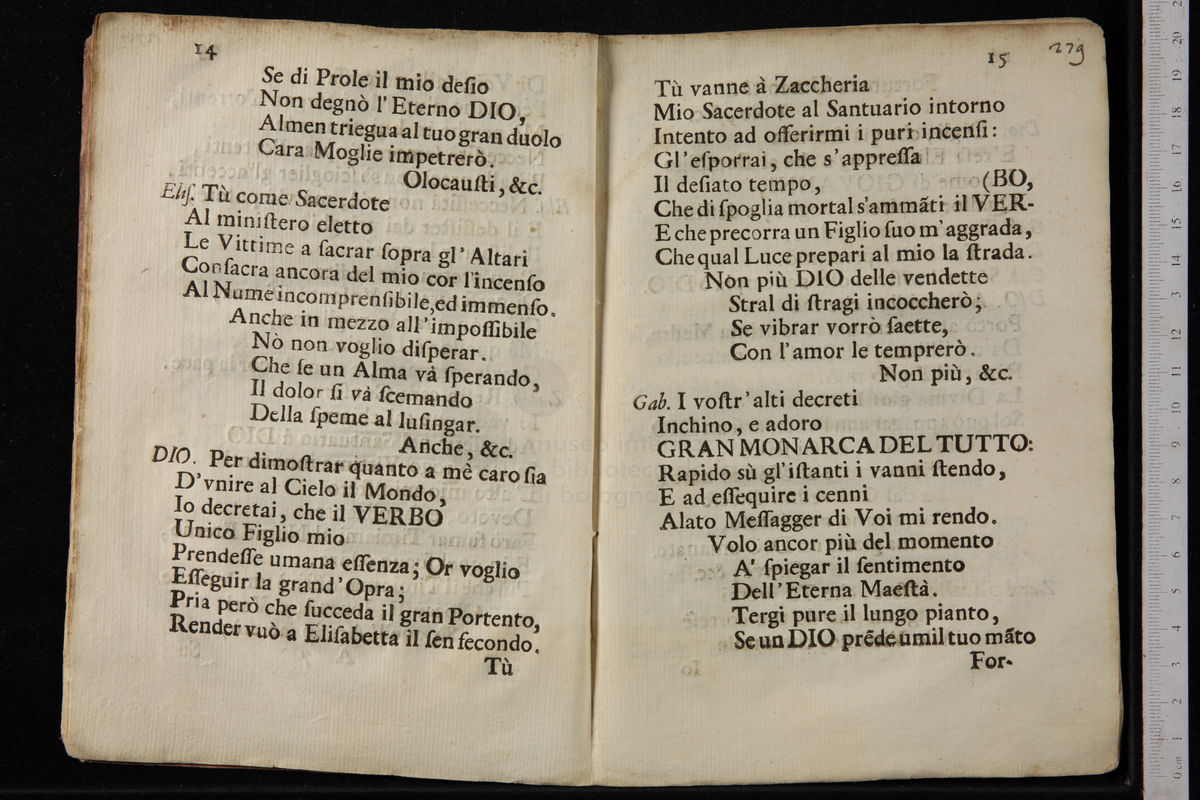 14
Se di Prole il mio deſio
Non degnò l'Eterno DIO,
Almen triegua al tuo gran duolo
Cara Moglie impetrerò.
Olocauſti, &c.
Eliſ. Tù come Sacerdote
Al miniſtero eletto
Le Vittime a ſacrar ſopra gl'Altari
Conſacra ancora del mio cor l'incenſo
Al Nume incomprenſibile, ed immenſo.
Anche in mezzo all'impoſſibile
Nò non voglio diſperar.
Che ſe un Alma và ſperando,
Il dolor ſi và ſcemando
Della ſpeme al luſingar.
Anche, &c.
DIO. Per dimoſtrar quanto a mè caro ſia
D'vnire al Cielo il Mondo,
Io decretai, che il VERBO
Unico Figlio mio
Prendeſſe umana eſſenza; Or voglio
Eſſeguir la grand'Opra;
Pria però che ſucceda il gran Portento,
Render vuò a Eliſabetta il ſen fecondo.
Tù
15
279
Tù vanne à Zaccheria
Mio Sacerdote al Santuario intorno
Intento ad offerirmi i puri incenſi:
Gl'eſporrai, che s'appreſſa
Il deſiato tempo, (BO,
Che di ſpoglia mortal s'ammãti il VER-
E che precorra un Figlio ſuo m'aggrada,
Che qual Luce prepari al mio la ſtrada.
Non più DIO delle vendette
Stral di ſtragi incoccherò;
Se vibrar vorrò ſaette,
Con l'amor le temprerò.
Non più, &c.
Gab. I voſtr'alti decreti
Inchino, e adoro
GRAN MONARCA DEL TUTTO:
Rapido sù gl'iſtanti i vanni ſtendo,
E ad eſſequire i cenni
Alato Meſſagger di Voi mi rendo.
Volo ancor più del momento
A' ſpiegar il ſentimento
Dell'Eterna Maeſtà.
Tergi pure il lungo pianto,
Se un DIO prẽde umil tuo mãto
For-